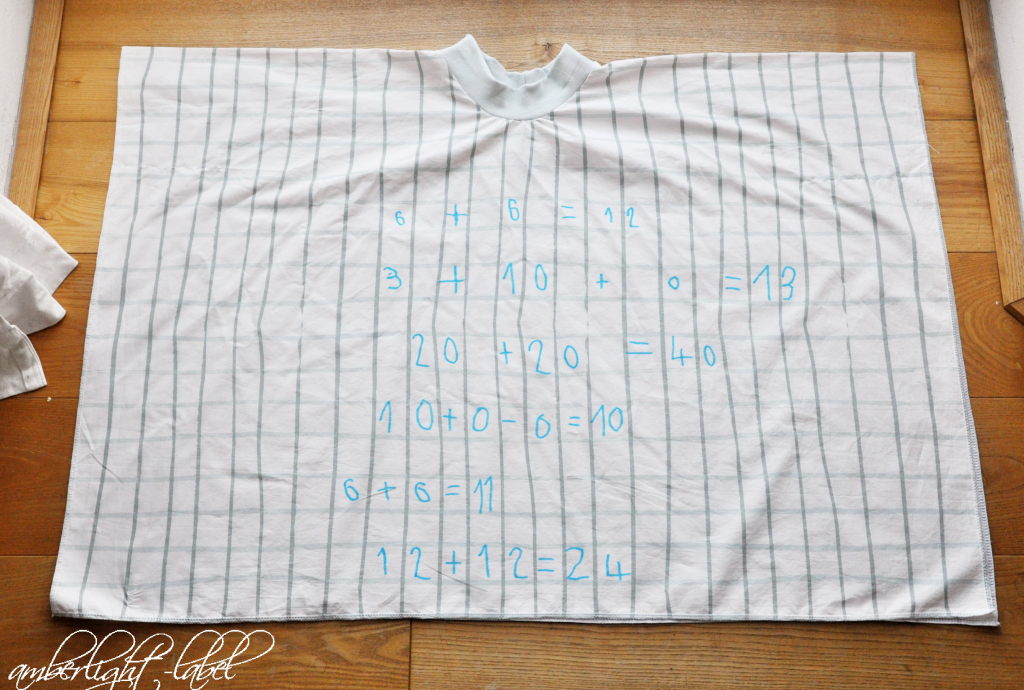 6 + 6 = 12
3 + 10 + 0 = 13
20 + 20 = 40
10 + 0 - 0 = 10
6 + 6 = 11
12 + 12 = 24
amberlight-label